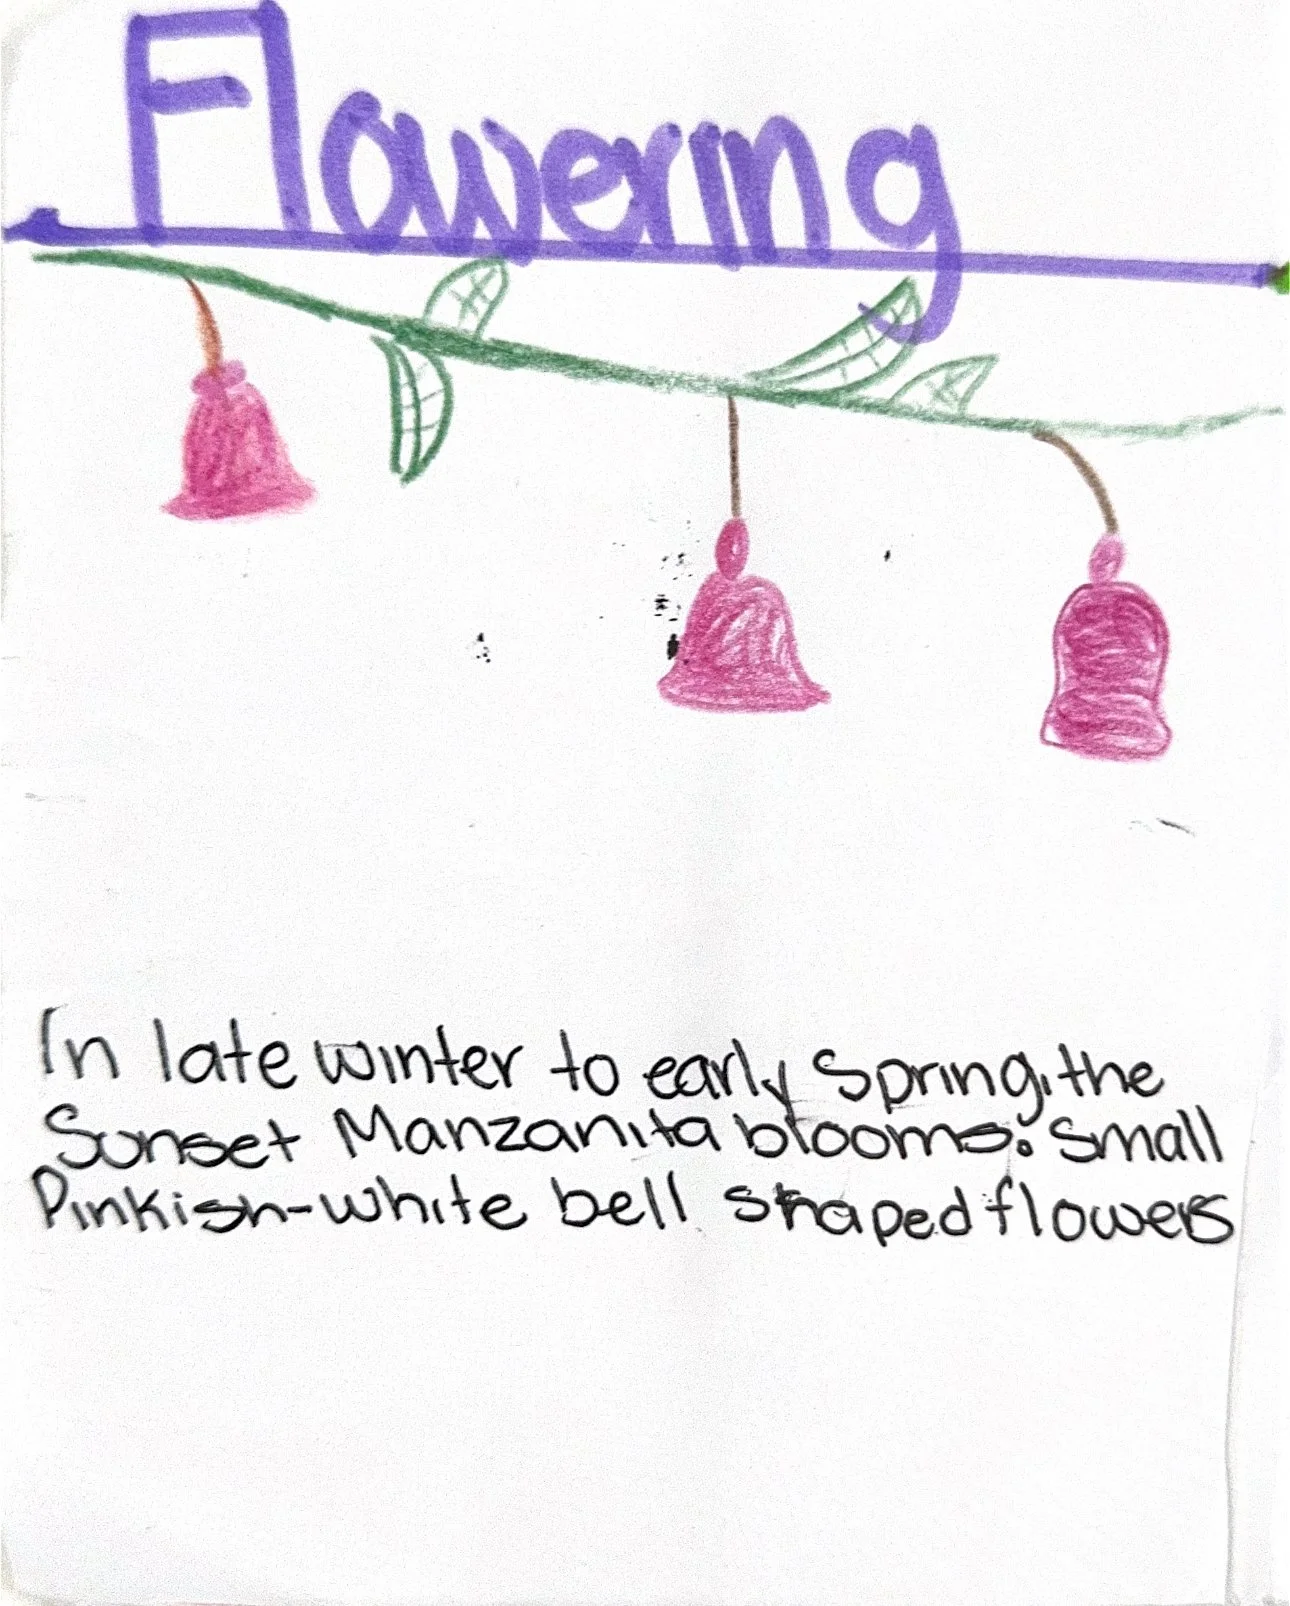 Flowering
In late winter to early Spring, the
Sunset Manzanita blooms: Small
Pinkish-white bell shaped flowers